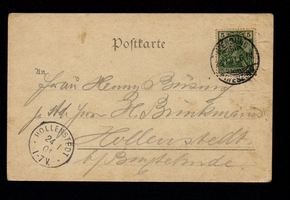 Postkarte
5 5
An
Frau Henny Büsing
p. Ad. Herrn H. Brinkmann
Hollenstedt
b/ Buxtehude
HOLLENSTEDT
24
1
01